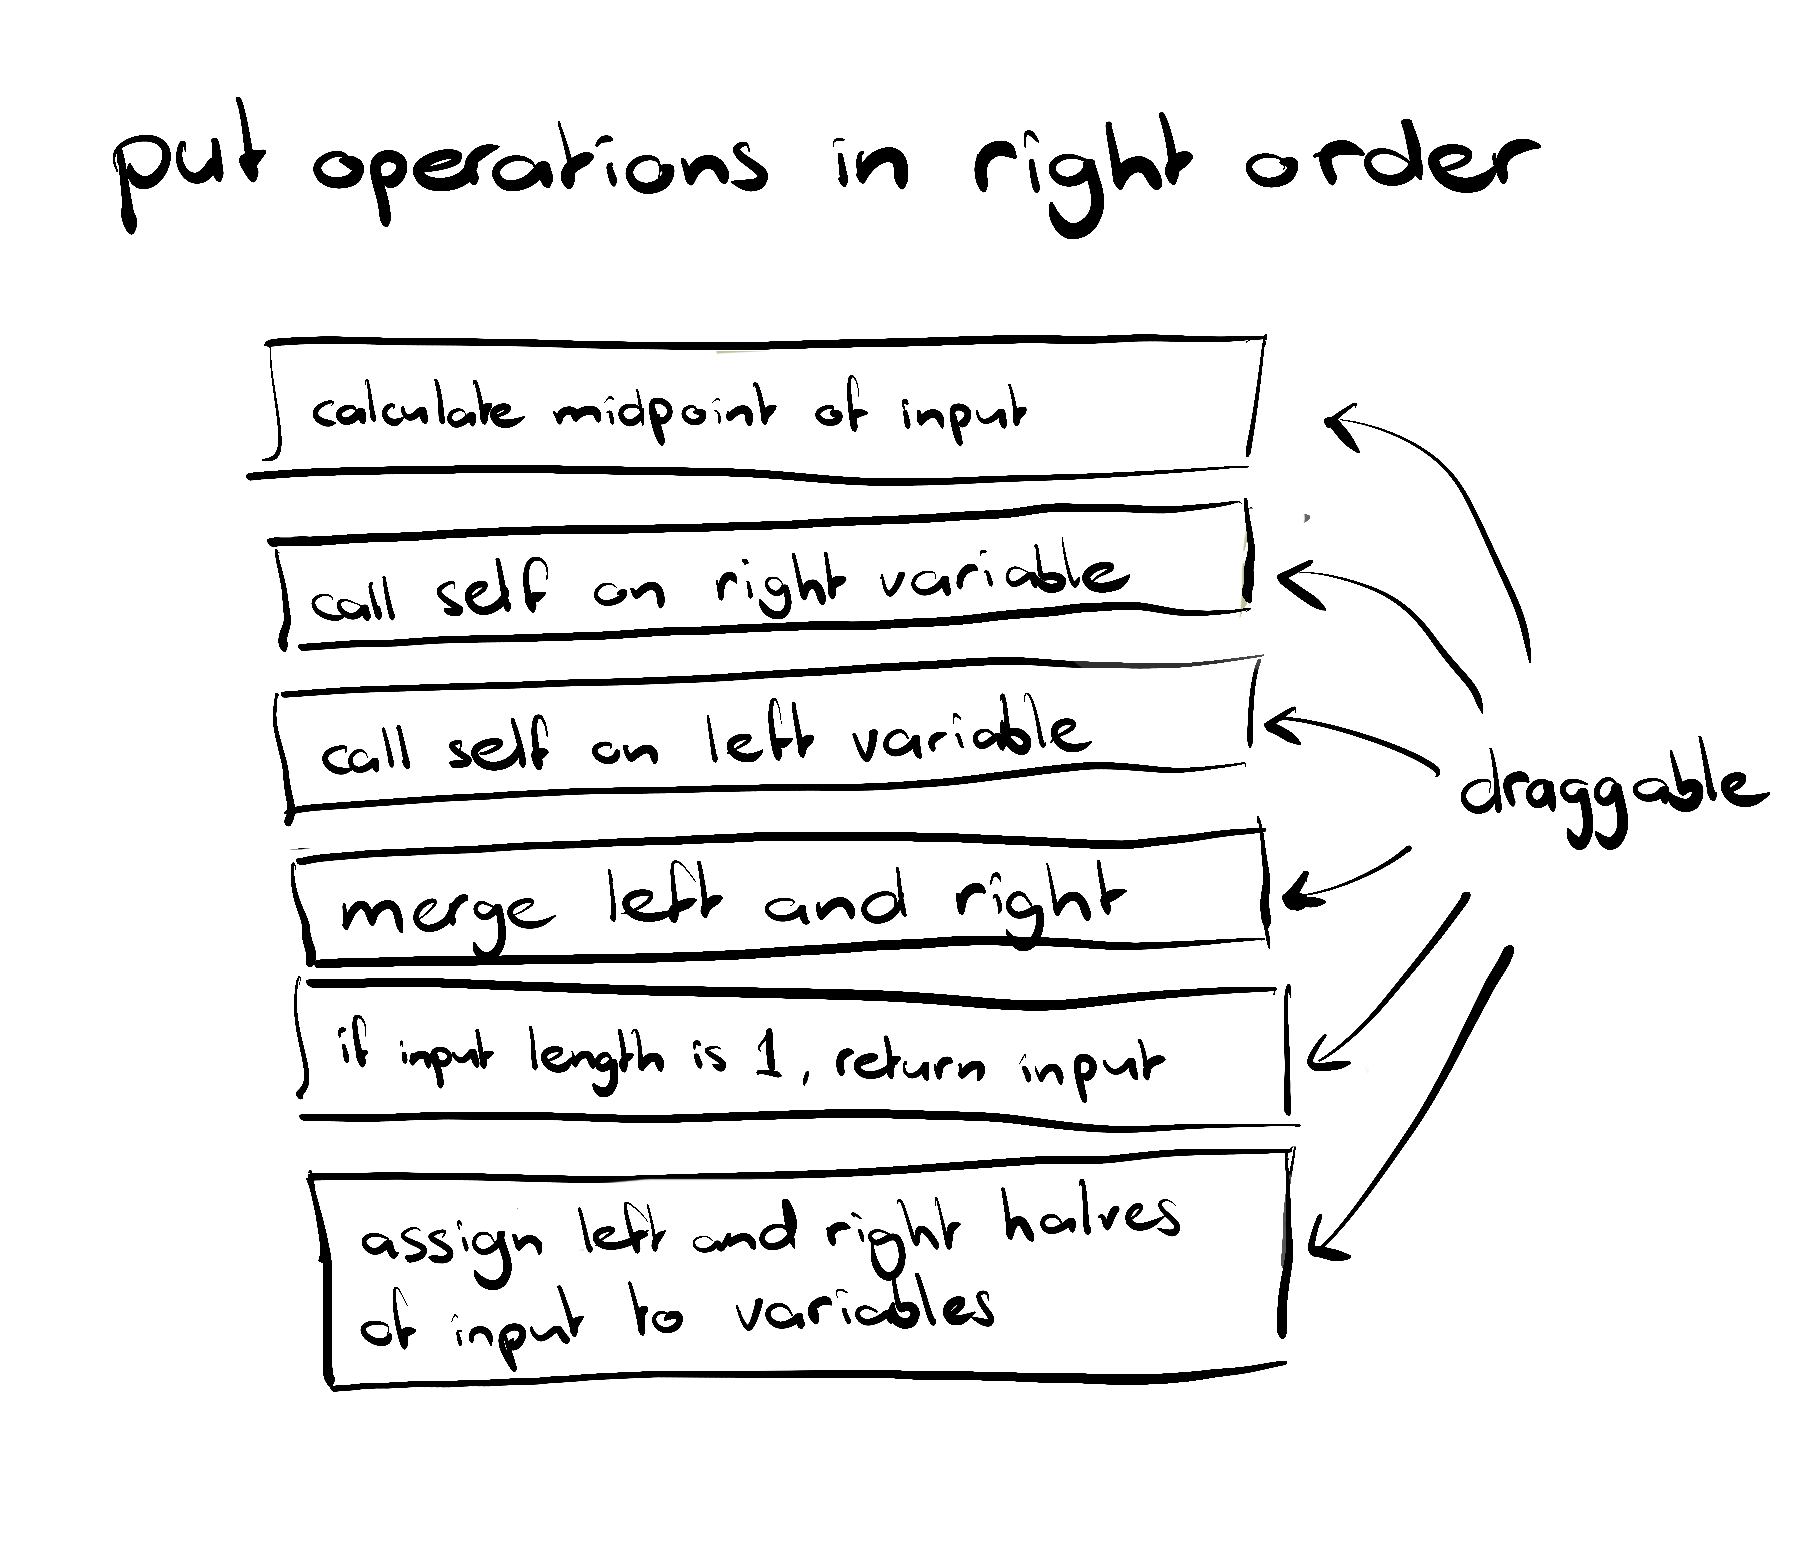 put operations in right order
calculate midpoint of input
call self on right variable
call self on left variable
draggable
merge left and right
if input length is 1, return input
assign left and right halves
of input to variables